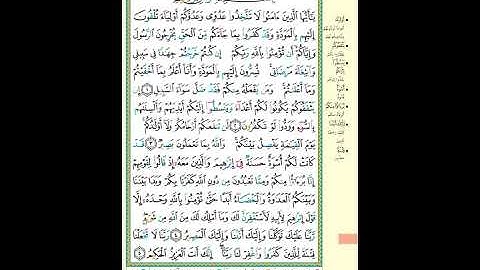 يَٰٓأَيُّهَا ٱلَّذِينَ ءَامَنُوا۟ لَا تَتَّخِذُوا۟ عَدُوِّى وَعَدُوَّكُمْ أَوْلِيَآءَ تُلْقُونَ
إِلَيْهِم بِٱلْمَوَدَّةِ وَقَدْ كَفَرُوا۟ بِمَا جَآءَكُم مِّنَ ٱلْحَقِّ يُخْرِجُونَ ٱلرَّسُولَ
وَإِيَّاكُمْ أَن تُؤْمِنُوا۟ بِٱللَّهِ رَبِّكُمْ إِن كُنتُمْ خَرَجْتُمْ جِهَٰدًا فِى سَبِيلِى
وَٱبْتِغَآءَ مَرْضَاتِى تُسِرُّونَ إِلَيْهِم بِٱلْمَوَدَّةِ وَأَنَا۠ أَعْلَمُ بِمَآ أَخْفَيْتُمْ
وَمَآ أَعْلَنتُمْ وَمَن يَفْعَلْهُ مِنكُمْ فَقَدْ ضَلَّ سَوَآءَ ٱلسَّبِيلِ ١ إِن
يَثْقَفُوكُمْ يَكُونُوا۟ لَكُمْ أَعْدَآءً وَيَبْسُطُوٓا۟ إِلَيْكُمْ أَيْدِيَهُمْ وَأَلْسِنَتَهُم
بِٱلسُّوٓءِ وَوَدُّوا۟ لَوْ تَكْفُرُونَ ٢ لَن تَنفَعَكُمْ أَرْحَامُكُمْ وَلَآ أَوْلَٰدُكُمْ
يَوْمَ ٱلْقِيَٰمَةِ يَفْصِلُ بَيْنَكُمْ وَٱللَّهُ بِمَا تَعْمَلُونَ بَصِيرٌ ٣ قَدْ
كَانَتْ لَكُمْ أُسْوَةٌ حَسَنَةٌ فِىٓ إِبْرَٰهِيمَ وَٱلَّذِينَ مَعَهُۥٓ إِذْ قَالُوا۟ لِقَوْمِهِمْ
إِنَّا بُرَءَٰٓؤُا۟ مِنكُمْ وَمِمَّا تَعْبُدُونَ مِن دُونِ ٱللَّهِ كَفَرْنَا بِكُمْ وَبَدَا بَيْنَنَا
وَبَيْنَكُمُ ٱلْعَدَٰوَةُ وَٱلْبَغْضَآءُ أَبَدًا حَتَّىٰ تُؤْمِنُوا۟ بِٱللَّهِ وَحْدَهُۥٓ إِلَّا
قَوْلَ إِبْرَٰهِيمَ لِأَبِيهِ لَأَسْتَغْفِرَنَّ لَكَ وَمَآ أَمْلِكُ لَكَ مِنَ ٱللَّهِ مِن شَىْءٍ
رَّبَّنَا عَلَيْكَ تَوَكَّلْنَا وَإِلَيْكَ أَنَبْنَا وَإِلَيْكَ ٱلْمَصِيرُ ٤ رَبَّنَا لَا تَجْعَلْنَا
فِتْنَةً لِّلَّذِينَ كَفَرُوا۟ وَٱغْفِرْ لَنَا رَبَّنَآ إِنَّكَ أَنتَ ٱلْعَزِيزُ ٱلْحَكِيمُ ٥